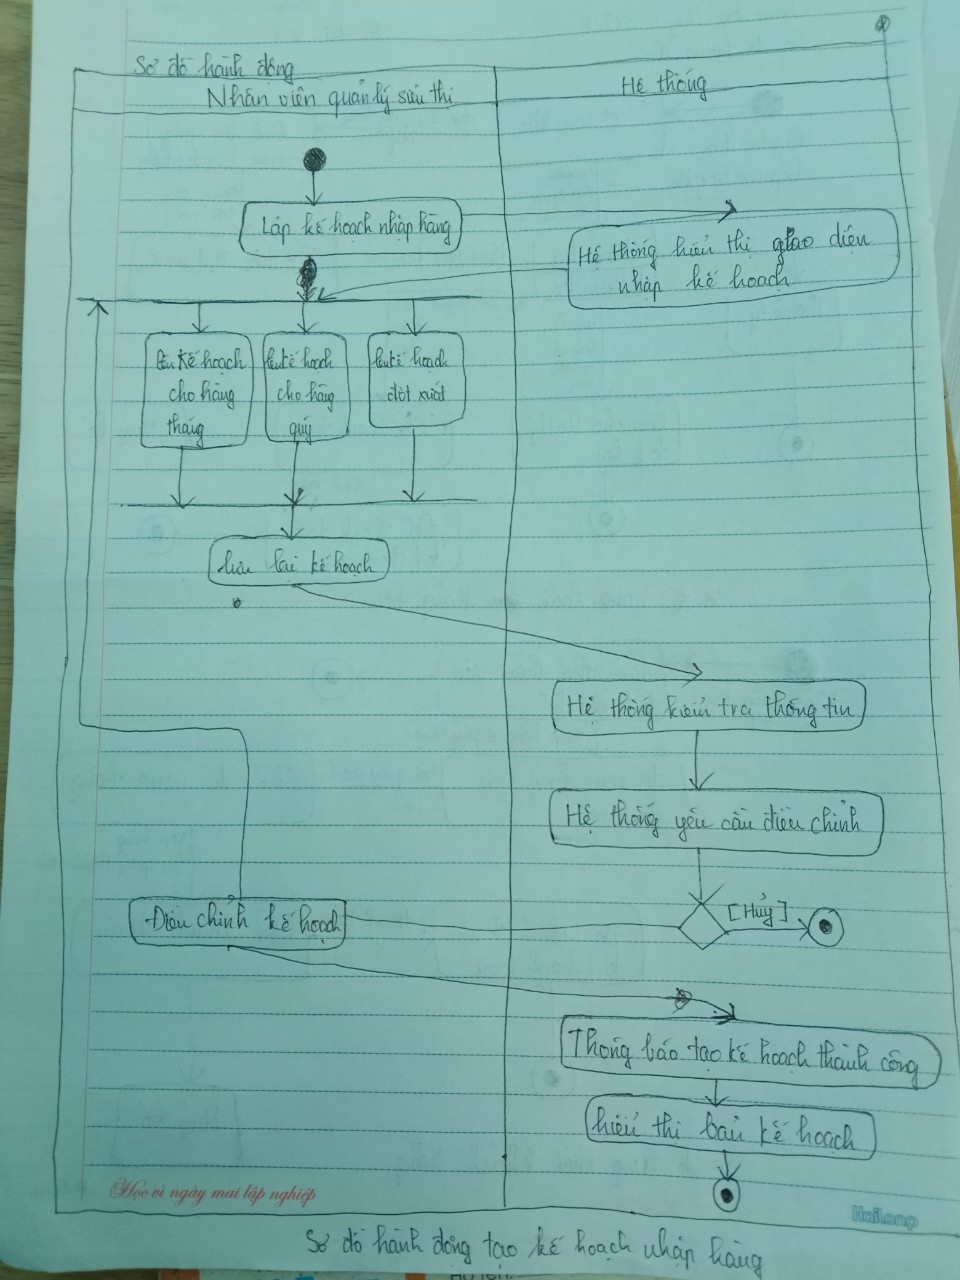 Sơ đồ hành động
Nhân viên quản lý siêu thị
Hệ thống
Lập kế hoạch nhập hàng
Hệ thống hiển thị giao diện
nhập kế hoạch
kế hoạch
cho hàng
tháng
kế hoạch
cho hàng
quý
kế hoạch
đột xuất
lưu lại kế hoạch
Hệ thống kiểm tra thông tin
Hệ thống yêu cầu điều chỉnh
[Hủy]
Điều chỉnh kế hoạch
Thông báo tạo kế hoạch thành công
hiển thị bản kế hoạch
Học vì ngày mai lập nghiệp
HaiLong
Sơ đồ hành động tạo kế hoạch nhập hàng